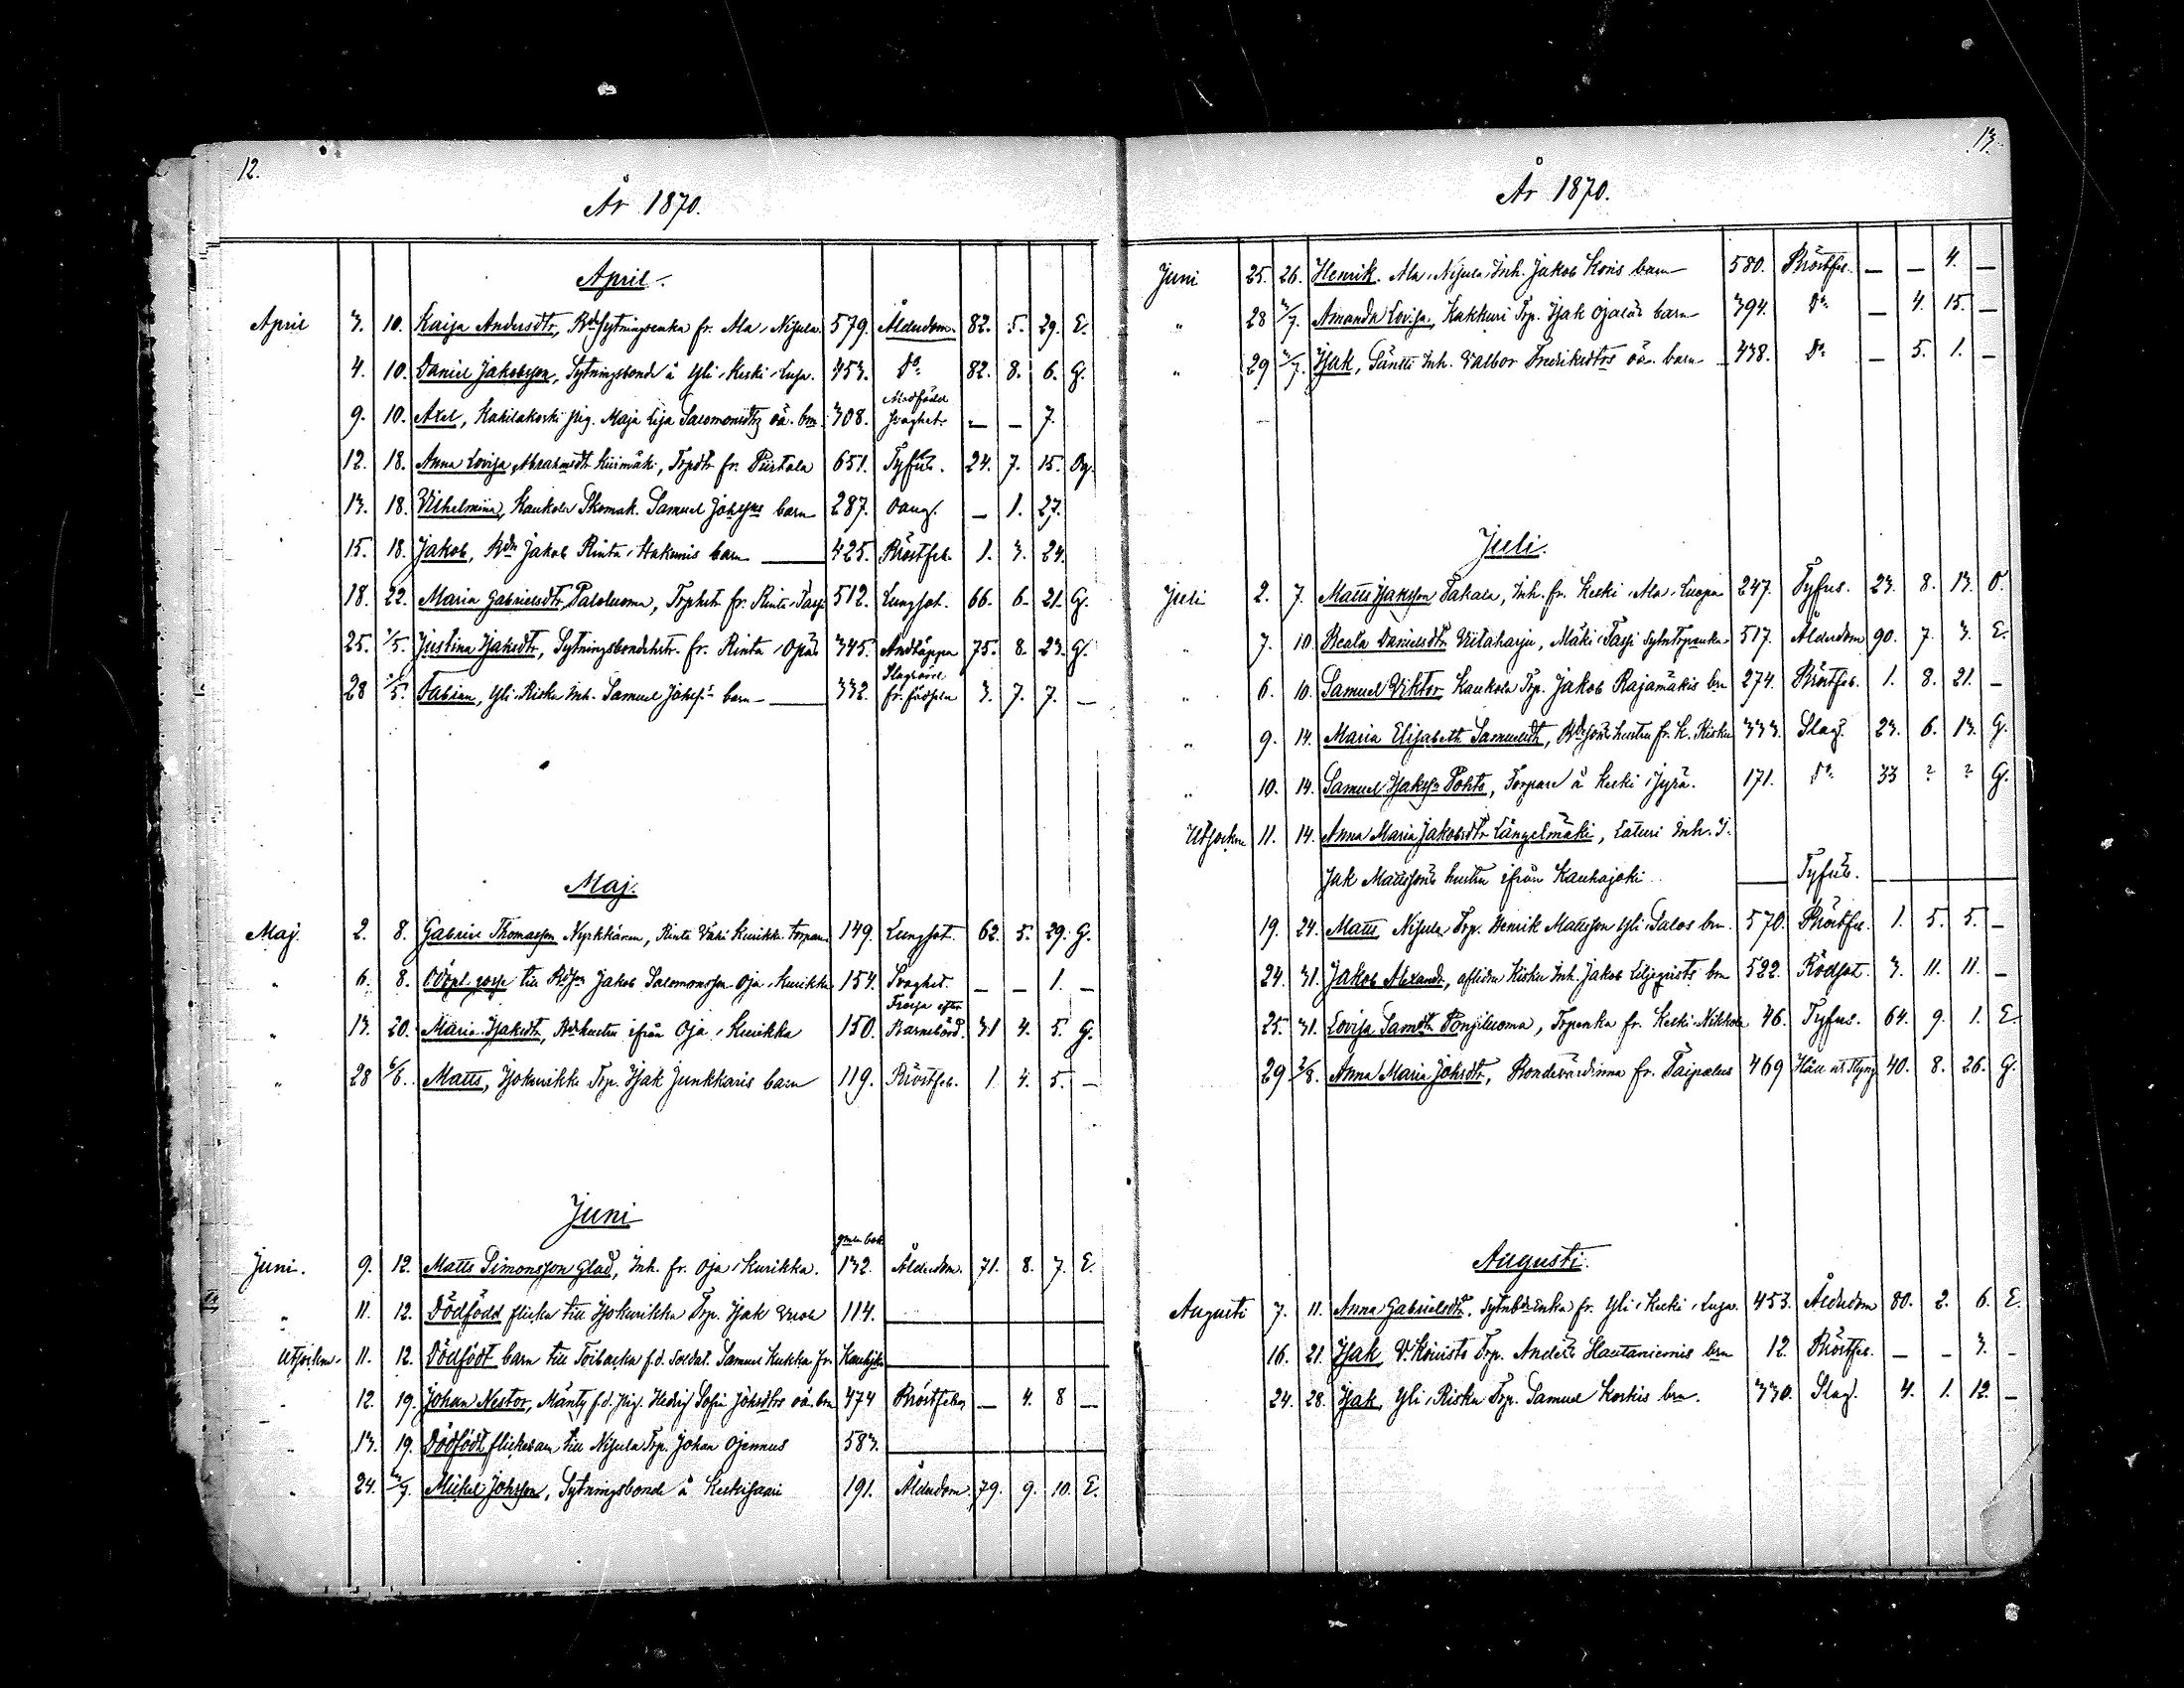 12.
År 1870.
April.
April 3. 10. Kaija Andersdtr, Bd Sytningsenka fr. Ala, Nisula. 579. Ålderdom. 82. 5. 29. E.
4. 10. Daniel Jakobsson, Sytningsbonde å Yli, Keski, Lusa. 453. Do. 82. 8. 6. G.
9. 10. Axel, Kakilakoski pig. Maja Lisa Salomonsdtrs oä. brn 308. Medfödd svaghet. — — 7.
12. 18. Anna Lovisa Abrahmsdtr Kiimäki, Trpdtr fr. Piirtola 651. Tyfus. 24. 7. 15. Og.
13. 18. Vilhelmina, Kaukola Skomak. Samuel Johssns barn 287. Oang. — 1. 27.
15. 18. Jakob, Bdn Jakob Rinta, Hakunis barn — 425. Bröstfeb. 1. 3. 24.
18. 22. Maria Gabrielsdtr Paloluoma, Trphstr fr. Rinta, Tassi 512. Lungsot. 66. 6. 21. G.
25. 1/5. Justina Isaksdtr, Sytningsbondehstr. fr. Rinta, Ojas 345. Andtäppa 75. 8. 23. G.
28 1/5. Fabian, Yli-Risku Inh. Samuel Johss:s barn — 332. Slag varit fr. födseln 3. 7. 7. —
Maj.
Maj. 2. 8. Gabriel Thomasson Nyrkkänen, Rinta Väki Kurikka torpare 149. Lungsot. 62. 5. 29. G.
" 6. 8. Odöpt gosse till Bdson Jakob Salomonsson Oja, Kurikka 154. Svaghet. — — 1. —
" 13. 20. Maria Isaksdtr, Bdehustru ifrån Oja, Kurikka 150. Frossa efter Barnsbörd. 31 4. 5. G.
" 28 6/6. Matts, Isokurikka Trp. Isak Junkkaris barn 119. Bröstfeb. 1. 4. 5. —
Juni
Juni. 9. 12. Matts Simonsson Glad, Inh. fr. Oja, Kurikka. gmla bok 132. Ålderdom. 71. 8. 7. E.
" 11. 12. Dödfödd flicka till Isokurikka Trp. Isak 114.
Utsocknes. 11. 12. Dödfödt barn till Toibacka f.d. Soldat. Samuel Kukka fr. Kauhajoki
" 12. 19. Johan Nestor, Mänty f.d. pig. Hedvig Sofia Johsdtrs oä. brn 474 Bröstfeber — 4. 8 —
" 13. 19. Dödfödt flickebarn till Nisula Trp. Johan Ojennus 583.
" 24. 3/7. Mickel Johsson, Sytningsbonde å Keskisaari 191. Ålderdom. 79. 9. 10. E.
13.
År 1870.
Juni 25. 26. Henrik. Ala, Nisula Inh. Jakob Koris barn — 580. Bröstfeb. — — 4. —
" 28 3/7. Amanda Lovisa, Kakkuri Trp. Isak Ojalas barn 394. Do. — 4. 15. —
" 29 3/7. Isak, Säntti Inh. Valbor Fredriksdtrs oä. barn — 438. Do. — 5. 1. —
Juli.
Juli 2. 7. Matts Isaksson Takala, Inh. fr. Keski, Ala, Luopa 247. Tyfus. 23. 8. 13. O.
" 7. 10. Beata Danielsdtr Viitaharju, Mäki, Tassi Sytntrpenka. 517. Ålderdom 90. 7. 3. E.
" 6. 10. Samuel Viktor Kaukola Trp. Jakob Rajamäkis brn 274. Bröstfeb. 1. 8. 21. —
" 9. 14. Maria Elisabeth Samuelsdtr, Bdesons hustru fr. K. Risku 333. Slag. 23. 6. 13. G.
" 10. 14. Samuel Isakss:n Pohto, Torpare å Keski, Jyrä. 171. Do. 33 ? ? G.
Utsockne 11. 14. Anna Maria Jakobsdtr Längelmäki, Laturi Inh. I.
sak Mattssons hustru ifrån Kauhajoki — Tyfus.
19. 24. Matts Nisula Trp. Henrik Mattsson Yli, Talos brn. 570. Bröstfeb. 1. 5. 5. —
24. 31. Jakob Alexand., aflidne Risku Inh. Jakob Liljeqvists brn 522. Rödsot. 3. 11. 11. —
25. 31. Lovisa Samdtr Ponsiluoma, Trpenka fr. Keski-Nikkola 46. Tyfus. 64. 9. 1. E.
29. 2/8. Anna Maria Johsdtr, Bondevärdinna fr. Taipalus 469 Håll o Styng 40. 8. 26. G.
Augusti.
Augusti 7. 11. Anna Gabrielsdtr. Sytnbdeenka fr. Yli, Keski, Lusa. 453. Ålderdom 80. 2. 6. E.
16. 21. Isak V. Koivisto Trp. Anders Hautaniemis brn 12. Bröstfeb. — — 3. —
24. 28. Isak, Yli, Risku Trp. Samuel Koskis brn. 330. Slag. 4. 1. 12. —